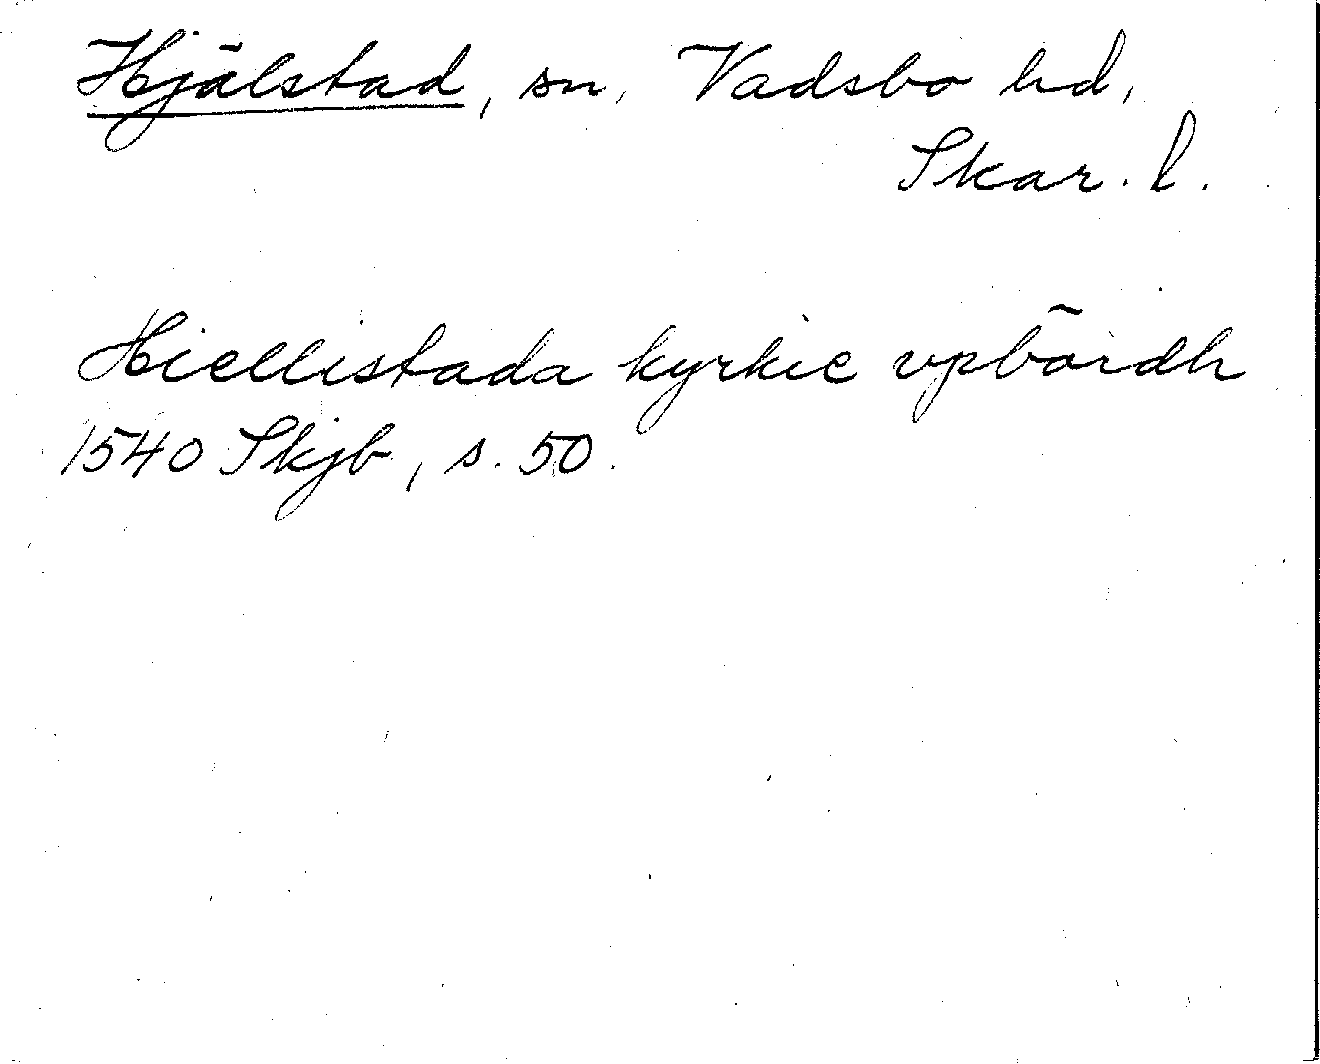 Hjälstad, sn, Vadsbo hd,
Skar. l.
Hiellistada kyrkie vpbördh
1540 Skjb, s. 50.